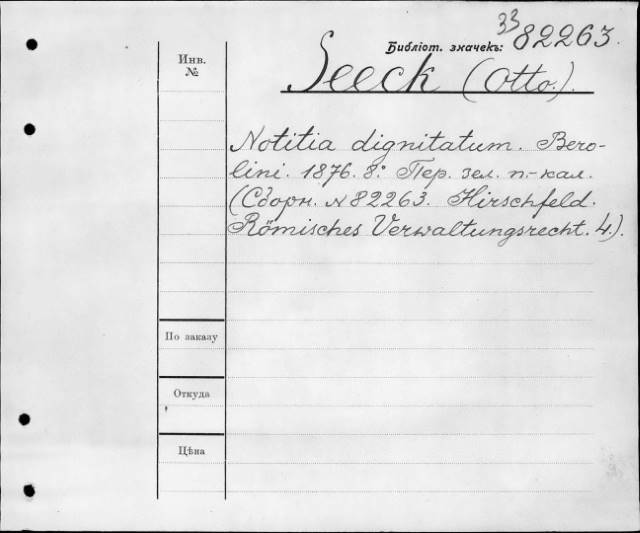 33
Библіот. значекъ: 82263.
Инв.
№
Seeck (Otto.).
Notitia dignitatum. Bero-
lini. 1876. 8º. Пер. зел. п.-кал.
(Сборн. №82263. Hirschfeld.
Römisches Verwaltungsrecht. 4.).
По заказу
Откуда
Цѣна